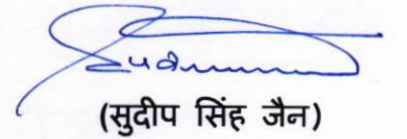 (सुदीप सिंह जैन)